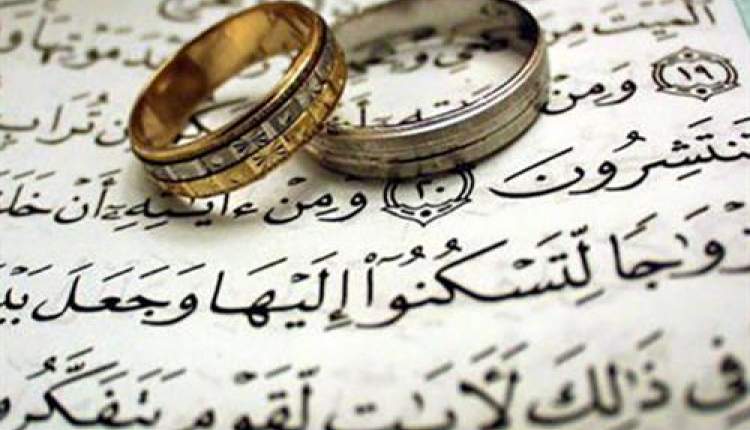 ٱلْمَيِّتَ مِنَ مَوْتِهَا وَ
١٩ وَمِنْ أَنْ تُرَابٍ
نتَشِرُونَ ٢٠ وَمِنْ ءَايَٰتِهِۦٓ أَنْ خَلَقَ
زْوَٰجًا لِّتَسْكُنُوٓا۟ إِلَيْهَا وَجَعَلَ بَيْ
فِى ذَٰلِكَ لَءَايَٰتٍ لِّقَوْمٍ يَتَفَكَّرُو